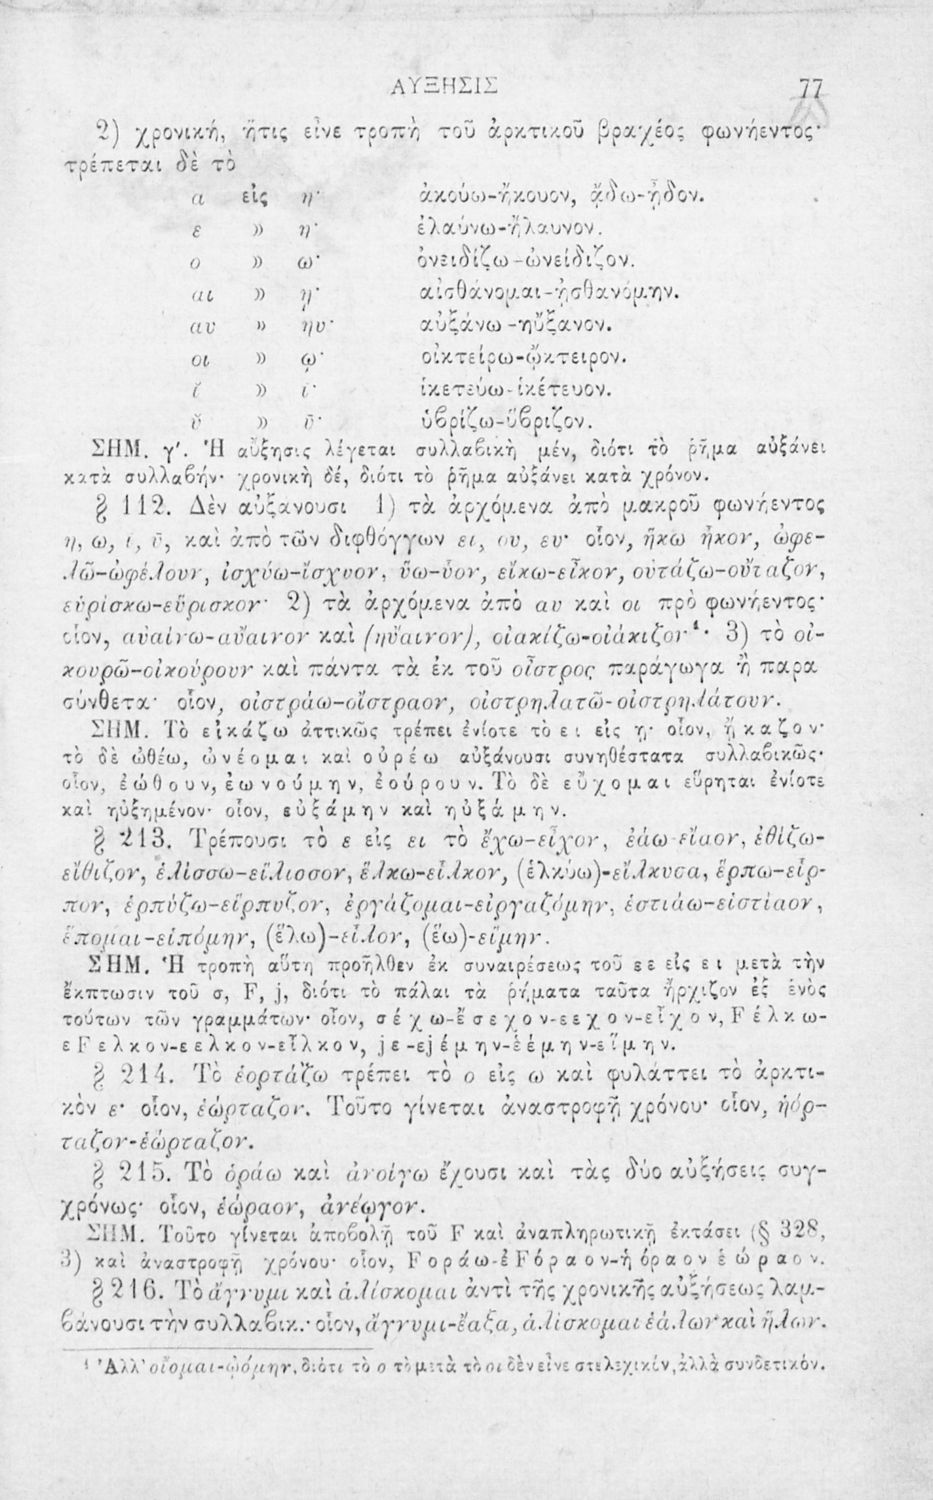 ΑΥΞΗΣΙΣ 77
2) χρονική, ἥτις εἶνε τροπὴ τοῦ ἀρκτικοῦ βραχέος φωνήεντος·
τρέπεται δὲ τὸ
α εἰς η· ἀκούω-ἤκουον, ᾄδω-ᾖδον.
ε » η· ἐλαύνω-ἤλαυνον.
ο » ω· ὀνειδίζω-ὠνείδιζον.
αι » ῃ· αἰσθάνομαι-ᾐσθανόμην.
αυ » ηυ· αὐξάνω-ηὔξανον.
οι » ῳ· οἰκτείρω-ᾤκτειρον.
ῐ » ῑ· ἱκετεύω-ἱκέτευον.
ῠ » ῡ· ὑβρίζω-ὕβριζον.
ΣΗΜ. γ'. Ἡ αὔξησις λέγεται συλλαβικὴ μέν, διότι τὸ ῥῆμα αὐξάνει
κατὰ συλλαβήν· χρονικὴ δέ, διότι τὸ ῥῆμα αὐξάνει κατὰ χρόνον.
§ 112. Δὲν αὐξάνουσι 1) τὰ ἀρχόμενα ἀπὸ μακροῦ φωνήεντος
η, ω, ῑ, ῡ, καὶ ἀπὸ τῶν διφθόγγων ει, ου, ευ· οἷον, ἥκω ἧκον, ὠφε-
λῶ-ὠφέλουν, ἰσχύω-ἴσχυον, ὕω-ὗον, εἴκω-εἶκον, οὐτάζω-οὔταζον,
εὑρίσκω-εὕρισκον· 2) τὰ ἀρχόμενα ἀπὸ αυ καὶ οι πρὸ φωνήεντος·
οἷον, αὐαίνω-αὔαινον καὶ (ηὔαινον), οἰακίζω-οἰάκιζον¹· 3) τὸ οἰ-
κουρῶ-οἰκούρουν καὶ πάντα τὰ ἐκ τοῦ οἶστρος παράγωγα ἢ παρα
σύνθετα· οἷον, οἰστράω-οἴστραον, οἰστρηλατῶ-οἰστρηλάτουν.
ΣΗΜ. Τὸ εἰκάζω ἀττικῶς τρέπει ἐνίοτε τὸ ει εἰς ῃ· οἷον, ᾔκαζον·
τὸ δὲ ὠθέω, ὠνέομαι καὶ οὐρέω αὐξάνουσι συνηθέστατα συλλαβικῶς·
οἷον, ἐώθουν, ἐωνούμην, ἐούρουν. Τὸ δὲ εὔχομαι εὕρηται ἐνίοτε
καὶ ηὐξημένον· οἷον, εὐξάμην καὶ ηὐξάμην.
§ 213. Τρέπουσι τὸ ε εἰς ει τὸ ἔχω-εἶχον, ἐάω-εἴαον, ἐθίζω-
εἴθιζον, ἑλίσσω-εἵλισσον, ἕλκω-εἷλκον, (ἑλκύω)-εἵλκυσα, ἕρπω-εἷρ-
πον, ἑρπύζω-εἵρπυζον, ἐργάζομαι-εἰργαζόμην, ἑστιάω-εἱστίαον,
ἕπομαι-εἱπόμην, (ἕλω)-εἷλον, (ἕω)-εἵμην.
ΣΗΜ. Ἡ τροπὴ αὕτη προῆλθεν ἐκ συναιρέσεως τοῦ εε εἰς ει μετὰ τὴν
ἔκπτωσιν τοῦ σ, F, j, διότι τὸ πάλαι τὰ ῥήματα ταῦτα ἤρχιζον ἐξ ἑνὸς
τούτων τῶν γραμμάτων· οἷον, σέχω-ἔσεχον-εεχον-εἶχον, Fέλκω-
εFελκον-εελκον-εἷλκον, jε-εjέμην-ἑέμην-εἵμην.
§ 214. Τὸ ἑορτάζω τρέπει τὸ ο εἰς ω καὶ φυλάττει τὸ ἀρκτι-
κὸν ε· οἷον, ἑώρταζον. Τοῦτο γίνεται ἀναστροφῇ χρόνου· οἷον, ἡόρ-
ταζον-ἑώρταζον.
§ 215. Τὸ ὁράω καὶ ἀνοίγω ἔχουσι καὶ τὰς δύο αὐξήσεις συγ-
χρόνως· οἷον, ἑώραον, ἀνέῳγον.
ΣΗΜ. Τοῦτο γίνεται ἀποβολῇ τοῦ F καὶ ἀναπληρωτικῇ ἐκτάσει (§ 328,
3) καὶ ἀναστροφῇ χρόνου· οἷον, Fοράω-ἐFόραον-ἡόραον ἑώραον.
§ 216. Τὸ ἄγνυμι καὶ ἁλίσκομαι ἀντὶ τῆς χρονικῆς αὐξήσεως λαμ-
βάνουσι τὴν συλλαβικ.· οἷον, ἄγνυμι-ἔαξα, ἁλίσκομαι ἑάλων καὶ ἥλων.
¹ Ἀλλ' οἴομαι-ᾠόμην, διότι τὸ ο τὸ μετὰ τὸ οι δὲν εἶνε στελεχικόν, ἀλλὰ συνδετικόν.